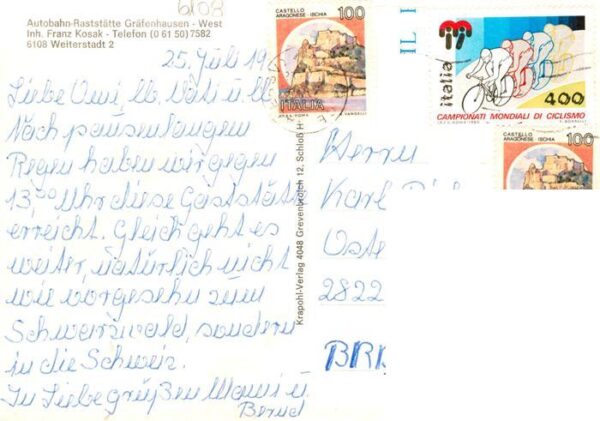 6108
Autobahn-Raststätte Gräfenhausen - West
Inh. Franz Kosak - Telefon (0 61 50) 7582
6108 Weiterstadt 2
25. Juli 19
Liebe Omi, lb. Vati u. lb.
Nach pausenlangem
Regen haben wir gegen
13,00 Uhr diese Gaststätte
erreicht. Gleich geht es
weiter, natürlich nicht
wie vorgesehn zum
Schwarzwald, sondern
in die Schweiz.
In Liebe grüßen Mami u.
Bernd
Krapohl-Verlag 4048 Grevenbroich 12, Schloß H
CASTELLO
ARAGONESE - ISCHIA
100
ITALIA
IL
italia
400
CAMPIONATI MONDIALI DI CICLISMO
CASTELLO
ARAGONESE - ISCHIA
100
Herrn
Karl
Oste
2822
BRD